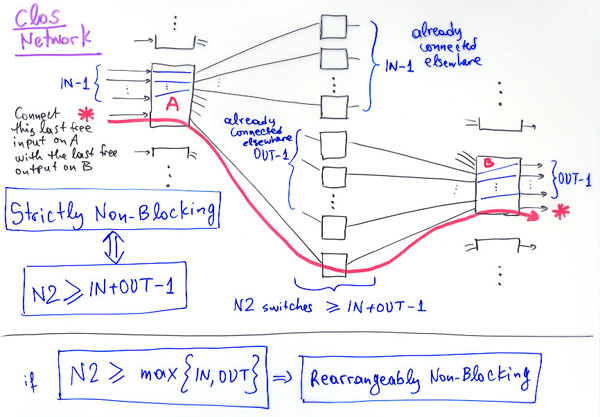 Clos
Network
IN-1
A
Connect
this last free
input on A
with the last free
output on B
*
already
connected
elsewhere
IN-1
already
connected
elsewhere
OUT-1
B
OUT-1
*
Strictly Non-Blocking
⇕
N2 ≥ IN+OUT-1
N2 switches ≥ IN+OUT-1
if N2 ≥ max{IN,OUT} ⇒ Rearrangeably Non-Blocking